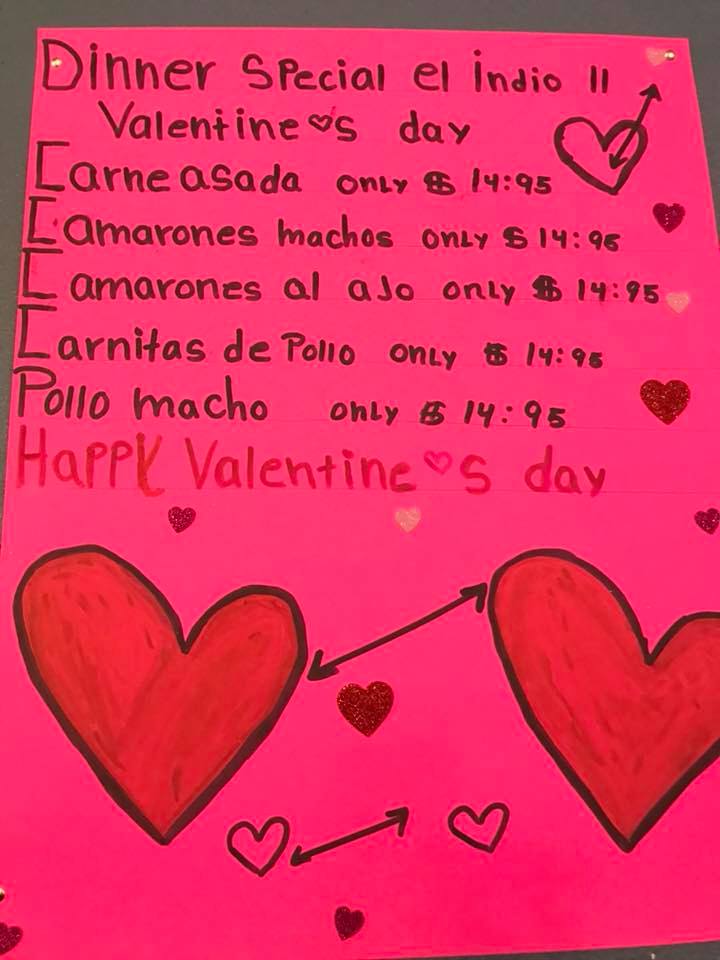 Dinner Special el indio II
Valentine♡s day
Carne asada only $ 14:95
Camarones machos only $ 14:95
Camarones al ajo only $ 14:95
Carnitas de Pollo only $ 14:95
Pollo macho only $ 14:95
Happy Valentine♡s day